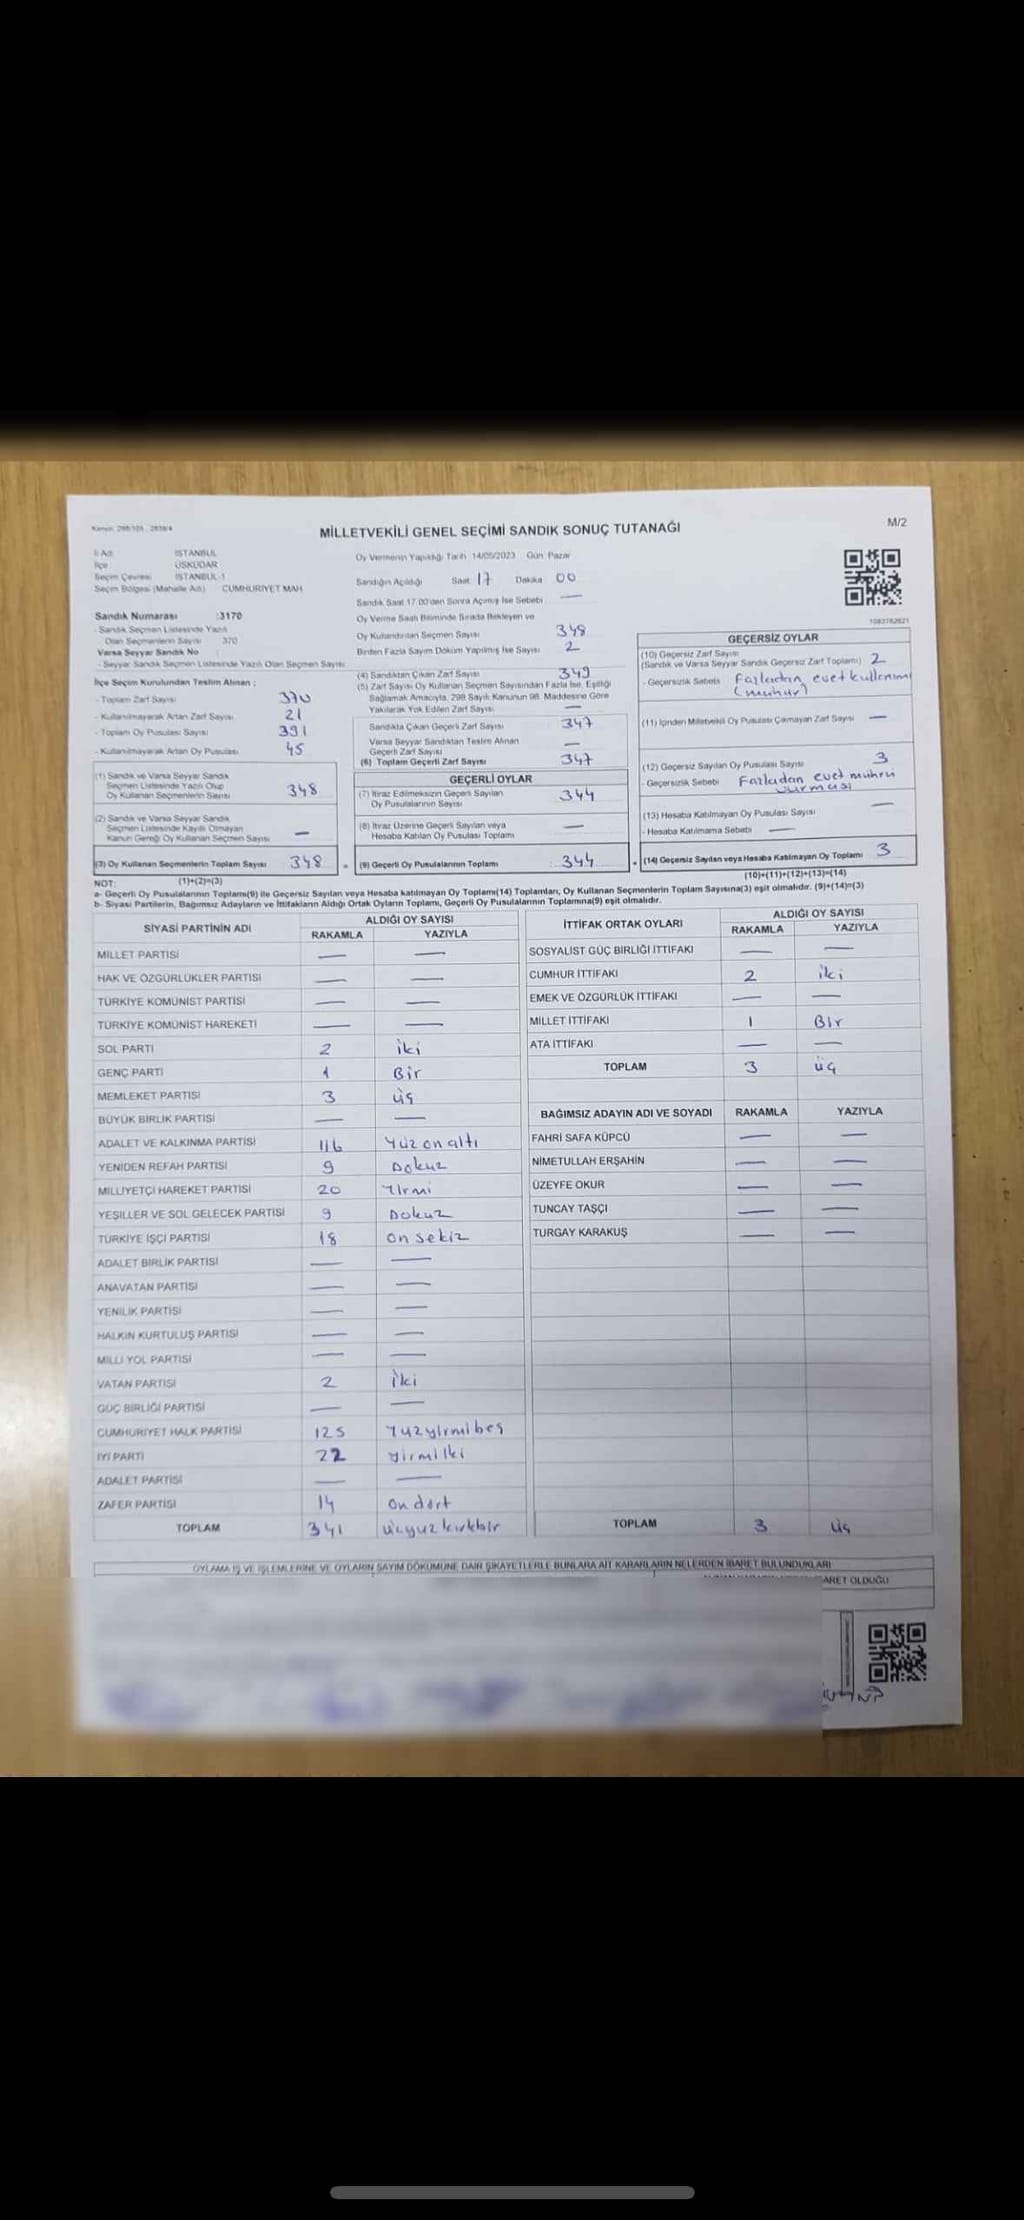 Kanun: 298/105 , 2839/4
MİLLETVEKİLİ GENEL SEÇİMİ SANDIK SONUÇ TUTANAĞI
M/2
İl Adı İSTANBUL
İlçe ÜSKÜDAR
Seçim Çevresi İSTANBUL-1
Seçim Bölgesi (Mahalle Adı) CUMHURİYET MAH
Sandık Numarası :3170
- Sandık Seçmen Listesinde Yazılı
Olan Seçmenlerin Sayısı 370
Varsa Seyyar Sandık No :
- Seyyar Sandık Seçmen Listesinde Yazılı Olan Seçmen Sayısı
Oy Vermenin Yapıldığı Tarih 14/05/2023 Gün Pazar
Sandığın Açıldığı Saat 17 Dakika 00
Sandık Saat 17.00'den Sonra Açılmış İse Sebebi —
Oy Verme Saati Bitiminde Sırada Bekleyen ve
Oy Kullandırılan Seçmen Sayısı 348
Birden Fazla Sayım Döküm Yapılmış İse Sayısı 2
1083782821
İlçe Seçim Kurulundan Teslim Alınan :
- Toplam Zarf Sayısı 370
- Kullanılmayarak Artan Zarf Sayısı 21
- Toplam Oy Pusulası Sayısı 391
- Kullanılmayarak Artan Oy Pusulası 45
(1) Sandık ve Varsa Seyyar Sandık
Seçmen Listesinde Yazılı Olup
Oy Kullanan Seçmenlerin Sayısı 348
(2) Sandık ve Varsa Seyyar Sandık
Seçmen Listesinde Kayıtlı Olmayan
Kanun Gereği Oy Kullanan Seçmen Sayısı —
(3) Oy Kullanan Seçmenlerin Toplam Sayısı 348
(1)+(2)=(3)
(4) Sandıktan Çıkan Zarf Sayısı 349
(5) Zarf Sayısı Oy Kullanan Seçmen Sayısından Fazla İse, Eşitliği
Sağlamak Amacıyla, 298 Sayılı Kanunun 98. Maddesine Göre
Yakılarak Yok Edilen Zarf Sayısı —
Sandıkta Çıkan Geçerli Zarf Sayısı 347
Varsa Seyyar Sandıktan Teslim Alınan
Geçerli Zarf Sayısı —
(6) Toplam Geçerli Zarf Sayısı 347
GEÇERLİ OYLAR
(7) İtiraz Edilmeksizin Geçerli Sayılan
Oy Pusulalarının Sayısı 344
(8) İtiraz Üzerine Geçerli Sayılan veya
Hesaba Katılan Oy Pusulası Toplamı —
= (9) Geçerli Oy Pusulalarının Toplamı : 344
GEÇERSİZ OYLAR
(10) Geçersiz Zarf Sayısı
(Sandık ve Varsa Seyyar Sandık Geçersiz Zarf Toplamı) 2
- Geçersizlik Sebebi Fazladan evet kullanımı
(mühür)
(11) İçinden Milletvekili Oy Pusulası Çıkmayan Zarf Sayısı —
(12) Geçersiz Sayılan Oy Pusulası Sayısı 3
- Geçersizlik Sebebi Fazladan evet mührü
vurması
(13) Hesaba Katılmayan Oy Pusulası Sayısı —
- Hesaba Katılmama Sebebi —
+ (14) Geçersiz Sayılan veya Hesaba Katılmayan Oy Toplamı 3
(10)+(11)+(12)+(13)=(14)
NOT:
a- Geçerli Oy Pusulalarının Toplamı(9) ile Geçersiz Sayılan veya Hesaba katılmayan Oy Toplamı(14) Toplamları, Oy Kullanan Seçmenlerin Toplam Sayısına(3) eşit olmalıdır. (9)+(14)=(3)
b- Siyasi Partilerin, Bağımsız Adayların ve İttifakların Aldığı Ortak Oyların Toplamı, Geçerli Oy Pusulalarının Toplamına(9) eşit olmalıdır.
SİYASİ PARTİNİN ADI ALDIĞI OY SAYISI
RAKAMLA YAZIYLA
MİLLET PARTİSİ — —
HAK VE ÖZGÜRLÜKLER PARTİSİ — —
TÜRKİYE KOMÜNİST PARTİSİ — —
TÜRKİYE KOMÜNİST HAREKETİ — —
SOL PARTİ 2 iki
GENÇ PARTİ 1 Bir
MEMLEKET PARTİSİ 3 üç
BÜYÜK BİRLİK PARTİSİ — —
ADALET VE KALKINMA PARTİSİ 116 Yüz on altı
YENİDEN REFAH PARTİSİ 9 Dokuz
MİLLİYETÇİ HAREKET PARTİSİ 20 Yirmi
YEŞİLLER VE SOL GELECEK PARTİSİ 9 Dokuz
TÜRKİYE İŞÇİ PARTİSİ 18 on sekiz
ADALET BİRLİK PARTİSİ — —
ANAVATAN PARTİSİ — —
YENİLİK PARTİSİ — —
HALKIN KURTULUŞ PARTİSİ — —
MİLLİ YOL PARTİSİ — —
VATAN PARTİSİ 2 İki
GÜÇ BİRLİĞİ PARTİSİ — —
CUMHURİYET HALK PARTİSİ 125 Yüzyirmibeş
İYİ PARTİ 22 yirmiiki
ADALET PARTİSİ — —
ZAFER PARTİSİ 14 on dört
TOPLAM 341 üçyüzkırkbir
İTTİFAK ORTAK OYLARI ALDIĞI OY SAYISI
RAKAMLA YAZIYLA
SOSYALİST GÜÇ BİRLİĞİ İTTİFAKI — —
CUMHUR İTTİFAKI 2 iki
EMEK VE ÖZGÜRLÜK İTTİFAKI — —
MİLLET İTTİFAKI 1 Bir
ATA İTTİFAKI — —
TOPLAM 3 üç
BAĞIMSIZ ADAYIN ADI VE SOYADI RAKAMLA YAZIYLA
FAHRİ SAFA KÜPCÜ — —
NİMETULLAH ERŞAHİN — —
ÜZEYFE OKUR — —
TUNCAY TAŞÇI — —
TURGAY KARAKUŞ — —
TOPLAM 3 üç
OYLAMA İŞ VE İŞLEMLERİNE VE OYLARIN SAYIM DÖKÜMÜNE DAİR ŞİKAYETLERLE BUNLARA AİT KARARLARIN NELERDEN İBARET BULUNDUKLARI
OLDUĞU